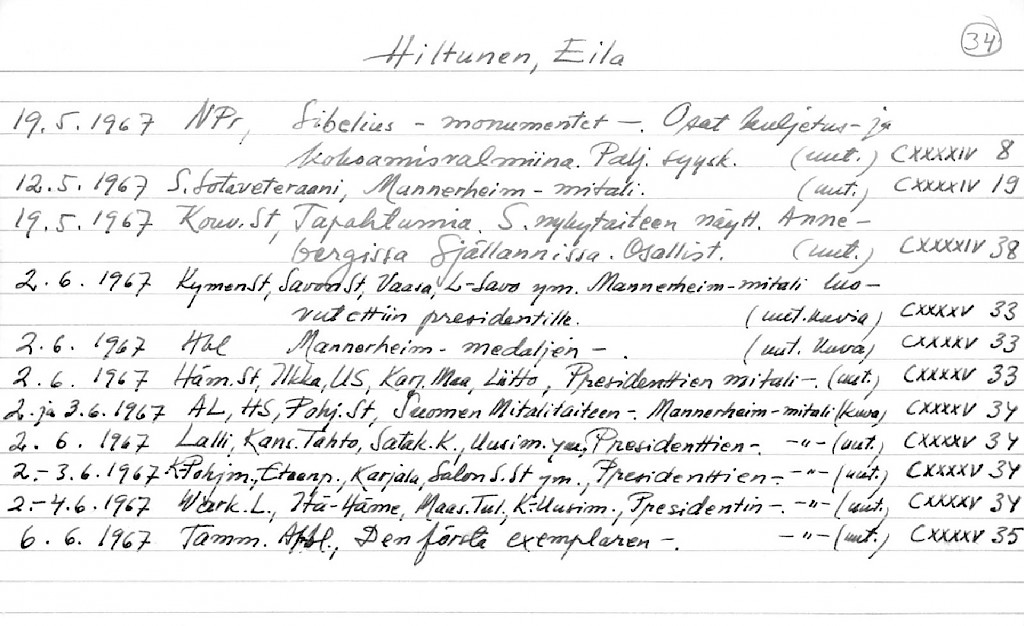 34
Hiltunen, Eila
19.5.1967 NPr, Sibelius - monumentet -. Osat kuljetus- ja
kokoamisvalmiina. Palj. syysk. (uut.) CXXXXIV 8
12.5.1967 S. Sotaveteraani, Mannerheim - mitali. (uut.) CXXXXIV 19
19.5.1967 Kouv.St, Tapahtumia. S. nykytaiteen näytt. Anne-
bergissa Själlannissa. Osallist. (uut.) CXXXXIV 38
2.6.1967 KymenSt, SavonSt, Vaasa, L-Savo ym. Mannerheim-mitali luo-
vutettiin presidentille. (uut. kuvia) CXXXXV 33
2.6.1967 Hbl Mannerheim - medaljen -. (uut. kuva) CXXXXV 33
2.6.1967 Häm.St, Ilkka, US, Karj. Maa, Liitto, Presidenttien mitali -. (uut.) CXXXXV 33
2. ja 3.6.1967 AL, HS, Pohj.St, Suomen Mitalitaiteen -. Mannerheim-mitali (kuva) CXXXXV 34
2.6.1967 Lalli, Kans.Tahto, Satak.K., Uusim. ym., Presidenttien -. -"- (uut.) CXXXXV 34
2.-3.6.1967 KPohjm., Etelänp., Karjala, SalonS.St ym., Presidenttien -. -"- (uut.) CXXXXV 34
2.-4.6.1967 Wark.L., Itä-Häme, Maas.Tul., K-Uusim., Presidentin -. -"- (uut.) CXXXXV 34
6.6.1967 Tamm. Den första exemplaren -. -"- (uut.) CXXXXV 35